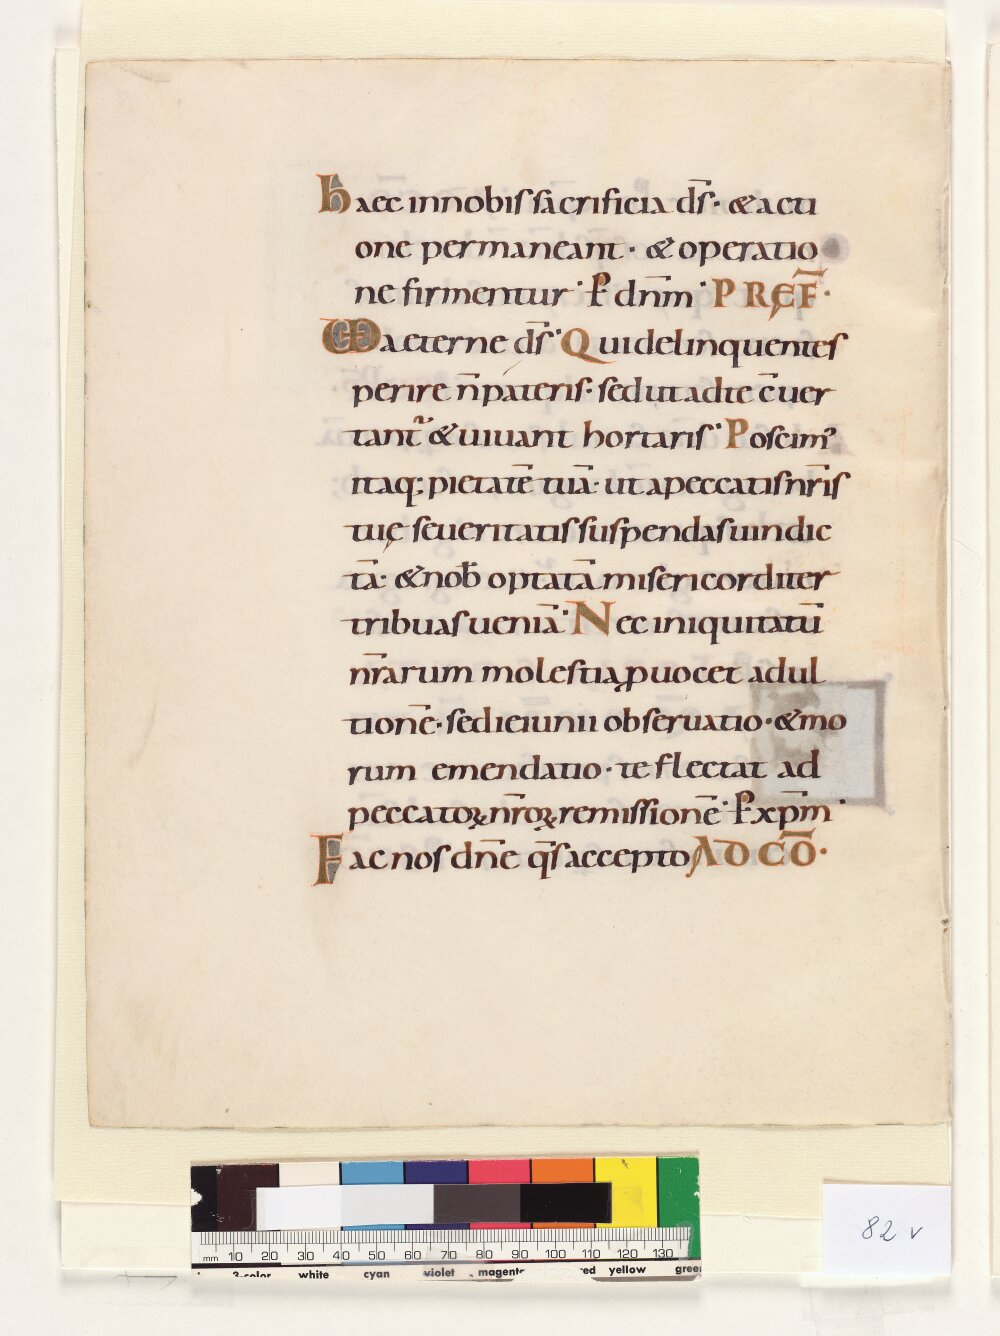 Haec in nobis sacrificia d̄s· & acti
one permaneant· & operatio
ne firmentur· P̄ dn̄m· PRĘF̄·
VD aeterne d̄s· Qui delinquentes
perire n̄ pateris· sed ut ad te c̄uer
tant᷑ & uiuant hortaris· Poscim᷒
itaq; pietatē tuā· ut a peccatis nr̄is
tuę seueritatis suspendas uindic
tā· & nob̄ optatā misericorditer
tribuas ueniā· Nec iniquitatū
nr̄arum molestia ꝓuocet ad ul
tionē· sed ieiunii obseruatio· & mo
rum emendatio· te flectat ad
peccatoꝝ nr̄oꝝ remissionē· P̄ xp̄m·
Fac nos dn̄e q̄s accepto AD CŌ·
82 v
mm 10 20 30 40 50 60 70 80 90 100 110 120 130
3-color white cyan violet magenta red yellow green